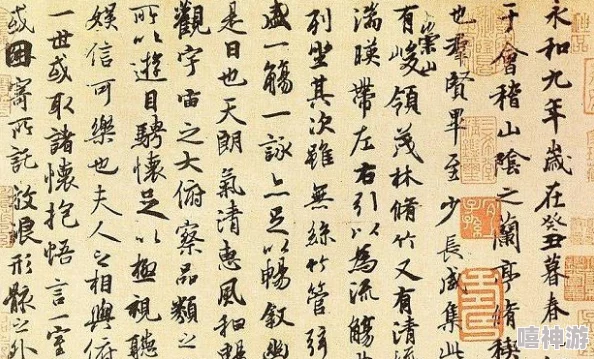 永和九年歲在癸丑暮春
于會稽山陰之蘭亭脩稧
也羣賢畢至少長咸集此
崇山
有峻領茂林脩竹又有清流
湍暎帶左右引以為流觴
列坐其次雖無絲竹管弦
盛一觴一詠亦足以暢叙幽
是日也天朗氣清惠風和暢
觀宇宙之大俯察品類之
所以遊目騁懷足以極視聽
娛信可樂也夫人之相與俯
一世或取諸懷抱悟言一室
或因寄所託放浪形骸之外
嘻神游